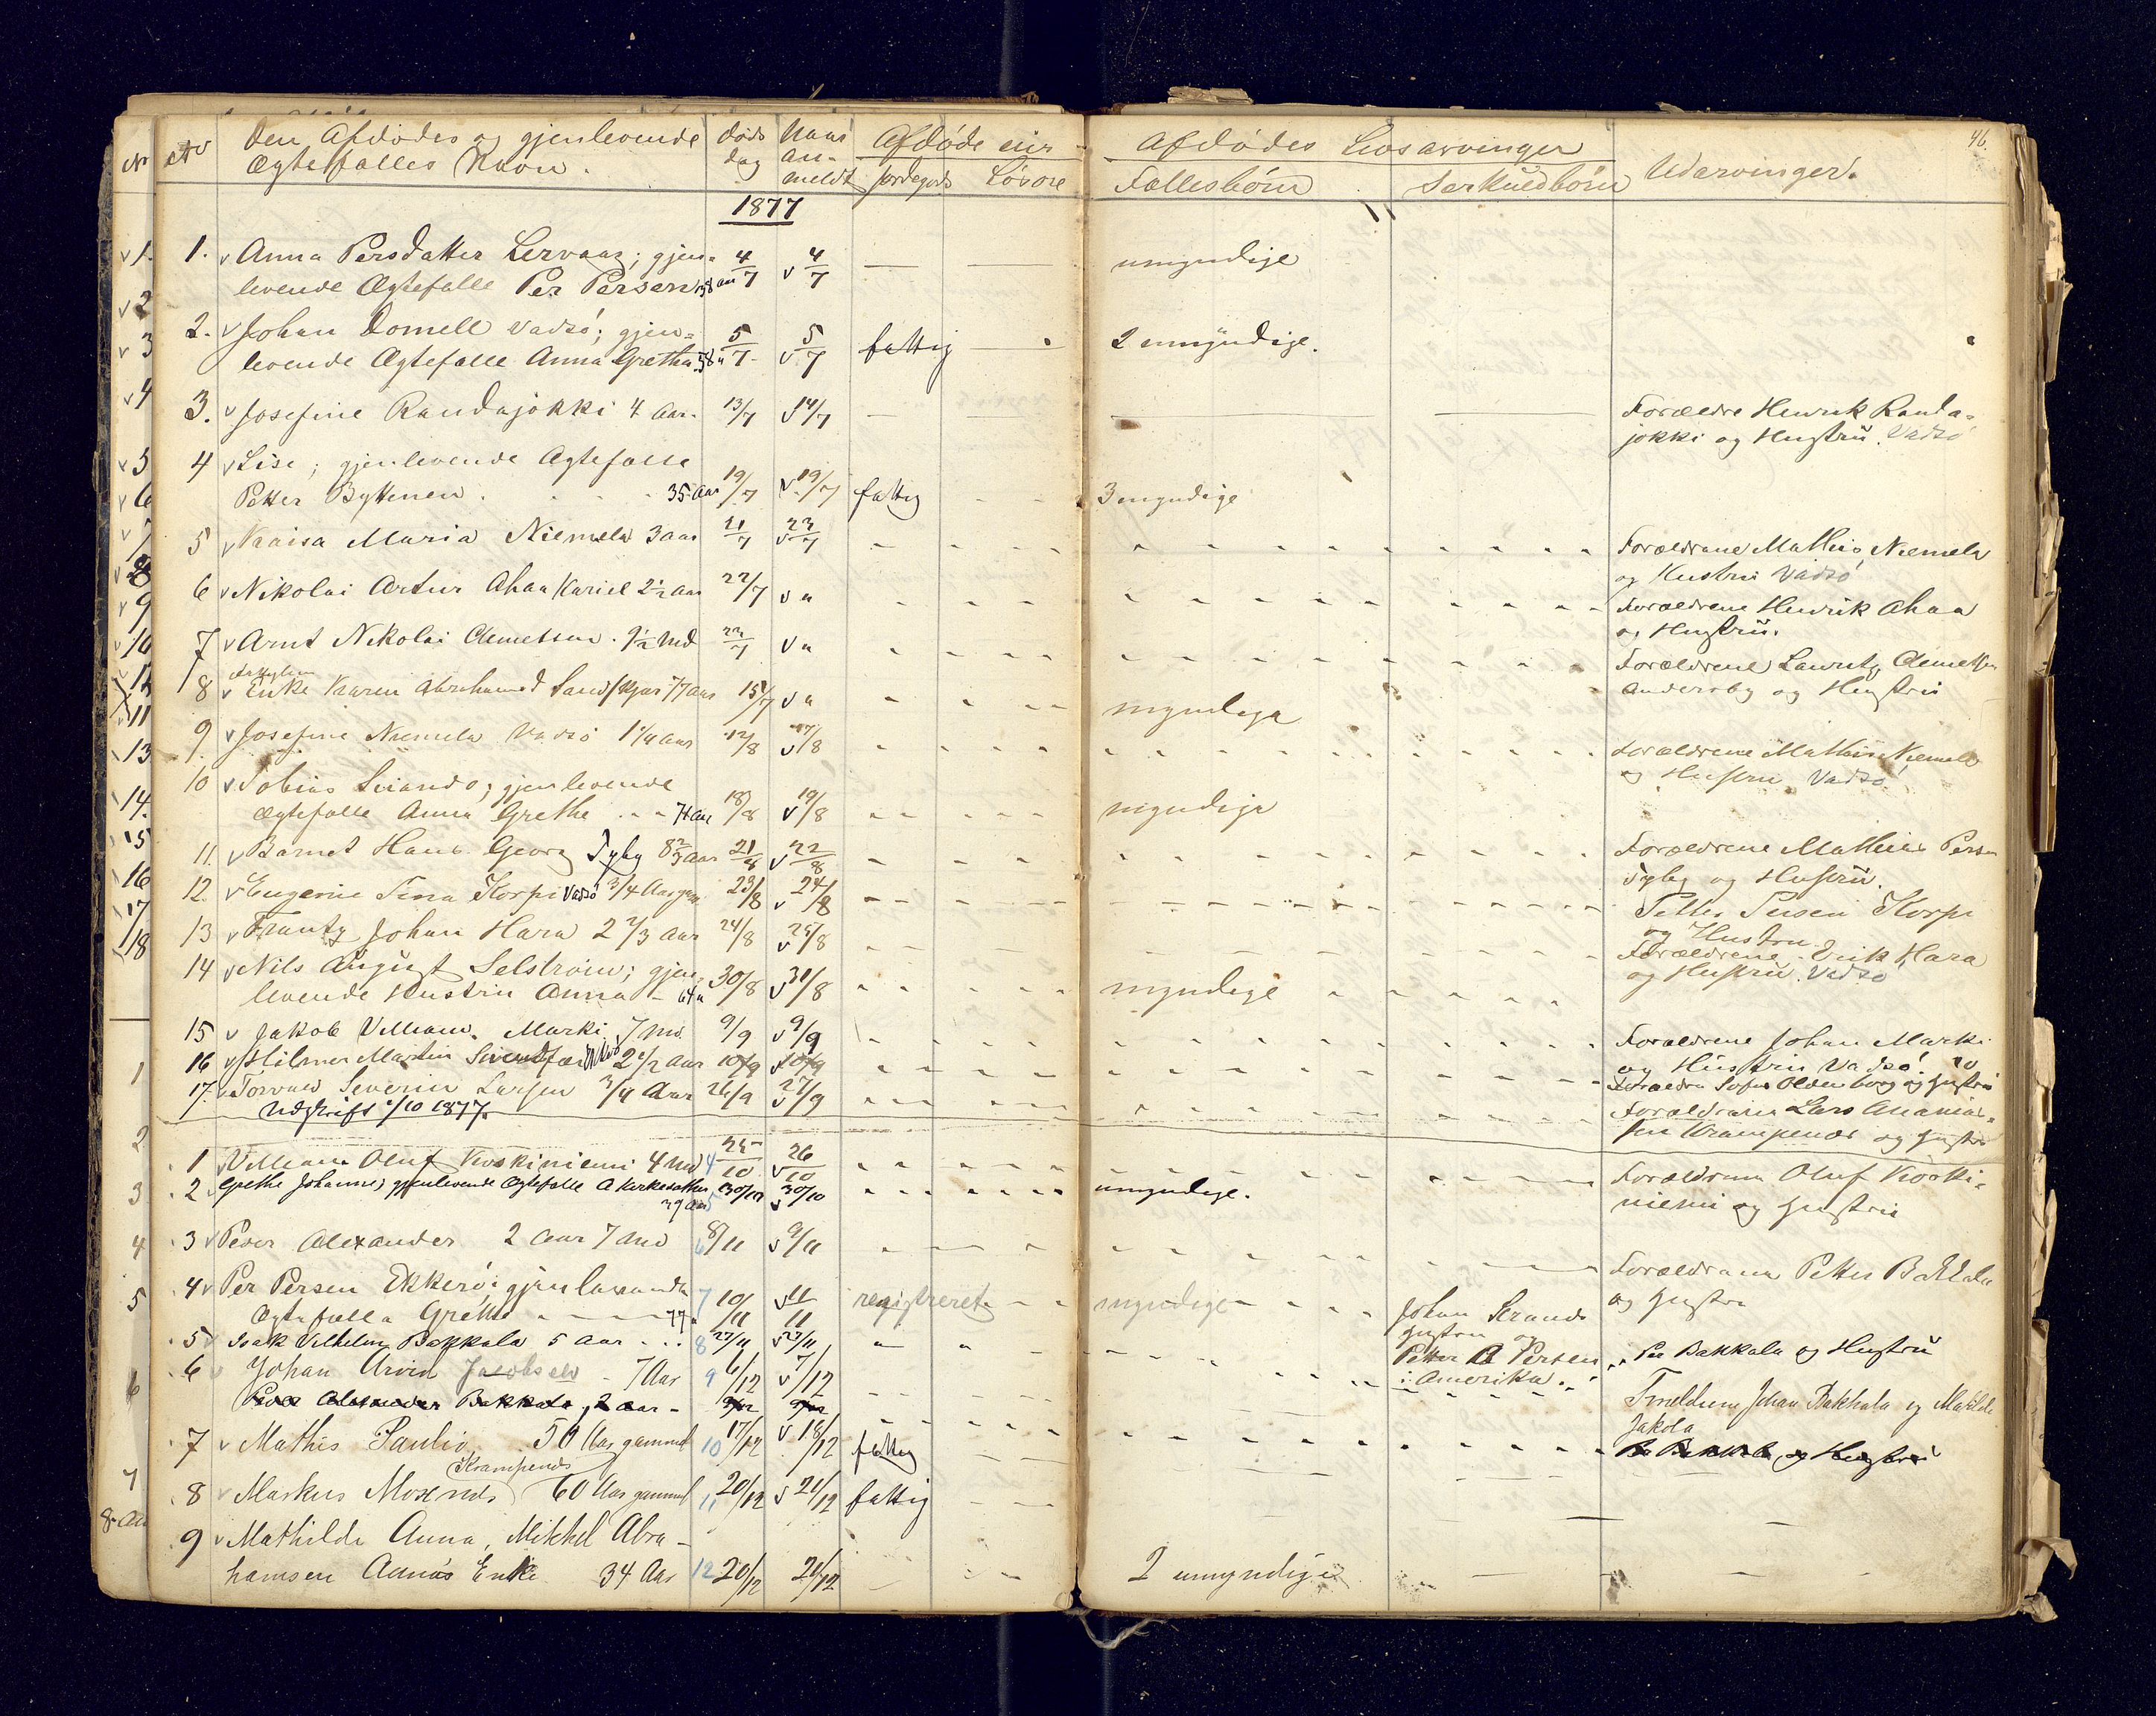 46.
No
Den Afdødes og gjenlevende
Ægtefælles Navn.
Døds
dag
Naar
an-
meldt
Afdøde eier
Jordegods
Løsøre
Afdødes Livsarvinger
Fællesbørn
Særkuldbørn
Udarvinger.
1877
1. v Anna Persdatter Lervaag; gjen- 4/7 v 4/7 — — umyndige
levende Ægtefælle Per Persen 38 aar
2. v Johan Domell Vadsø; gjen= 5/7 v 5/7 fattig 2 umyndige.
levende Ægtefælle Anna Gretha. 58 a
3. v Josefine Randajokki 4 Aar. 13/7 v 14/7 — — Forældre Henrik Randa-
jokki og Hustru. Vadsø
4 v Lise; gjenlevende Ægtefælle
Petter Byttenen. 35 Aar 19/7 v 19/7 fattig 3 myndige
5 v Kaaisa Maria Niemela 3 aar 21/7 v 23/7 Forældrene Mathis Niemela
og Hustru Vadsø
6 v Nikolai Artur Ahaa 2½ Aar 22/7 v " Forældrene Henrik Ahaa
og Hustru.
7 v Arnt Nikolai Clemetsen. 9½ Md 23/7 v " Forældrene Lauritz Clemetsen
Andersby og Hustru
8 v Enke Karen Abrahamsd Sandskjær 77 aar 15/7 v " myndige
9. v Josefine Niemela Vadsø 1¼ aar 12/8 v 17/8 Forældrene Mathis Niemela
og Hustru Vadsø
10 v Tobias Siiando; gjenlevende
Ægtefælle Anna Grethe 74 Aar 18/8 v 19/8 myndige
11. v Barnet Hans Georg Tyby 8⅔ aar 21/8 v 22/8 Forældrene Mathis Persen
Tyby og Hustru.
12. v Eugenie Sina Korpi Vadsø 3/4 Aar gm 23/8 v 24/8 Petter Persen Korpi
og Hustru
13 v Frantz Johan Hara 2 2/3 aar 24/8 v 25/8 Forældrene Erik Hara
og Hustru. Vadsø
14 v Nils August Selström; gjen- 30/8 v 31/8 myndige
levende Hustru Anna - 64 a
15 v Jakob Villiam Marki 7 Md. 9/9 v 9/9 Forældrene Johan Marki
og Hustru Vadsø.
16 v Hilmer Martin 2½ aar 10/9 v 10/9 Forældre Sofus Oldenborg og Hustru
17. v Torvald Severin Larsen 3/4 Aar 26/9 v 27/9 Forældrene Lars Ananias-
sen Krampenæs og Hustru
Udskrift 1/10 1877.
1 Villiam Oluf Koskiniemi 4 Md 4 25/10 v 26/10 Forældrene Oluf Koski-
niemi og Hustru
2 Grethe Johanne; gjenlevende Ægtefælle A Kirkesather 5 30/10 v 30/10 umyndige.
39 Aar
3 v Peder Alexander 2 Aar 7 Md 6 8/11 v 9/11 Forældrene Petter Bakkala
og Hustru
4 v Per Persen Ekkerø; gjenlevende
Ægtefælle Grethe 77 7 10/11 v 11/11 registreret myndige Johan Strands
Hustru og
Petter A Persen
i Amerika.
5 v Isak Vilhelm Bakkala 5 Aar 8 22/11 v 23/11 Per Bakkala og Hustru
6 v Johan Arvid Jacobsen 7 Aar 9 6/12 v 7/12 Forældrene Johan Bakkala og Matilde
Jakola
Peder Alexander Bakkala, 2 aar - 9/12 9/12 Per Bakkala og Hustru
7 v Mathis Paulio, 50 Aar gammel 10 17/12 v 18/12 fattig
Krampenæs
8 v Markus Mosenes 60 Aar gammel 11 20/12 v 21/12 fattig
9 v Mathilde Anna, Mikkel Abra-
hamsen Aanäs Enke 34 Aar 12 20/12 21/12 2 umyndige